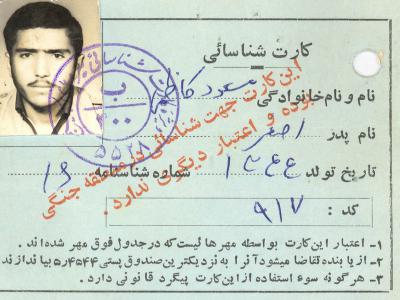 کارت شناسائی
نام و نام خانوادگی: مسعود
نام پدر اصغر
تاریخ تولد ۱۳۴۴ شماره شناسنامه ۱۶
کد : ۹۱۷
این کارت جهت شناسائی در منطقه جنگی
بوده و اعتبار دیگری ندارد.
ب
۱ـ اعتبار این کارت بواسطه مهرهائیست که در جدول فوق مهر شده اند.
۲ـ از یابنده تقاضا میشود آنرا به نزدیکترین صندوق پستی بیاندازند
۳ـ هرگونه سوء استفاده از این کارت پیگرد قانونی دارد.